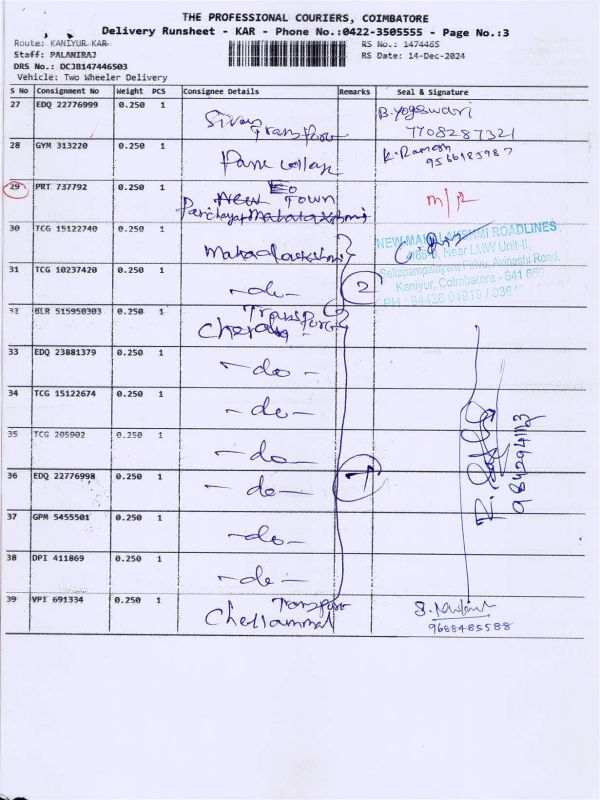 THE PROFESSIONAL COURIERS, COIMBATORE
Delivery Runsheet - KAR - Phone No.:0422-3505555 - Page No.:3
Route: KANIYUR KAR
Staff: PALANIRAJ
DRS No.: DCJB147446503
Vehicle: Two Wheeler Delivery
RS No.: 1474465
RS Date: 14-Dec-2024
S No Consignment No Weight PCS Consignee Details Remarks Seal & Signature
27 EDQ 22776999 0.250 1 Sivan Transport B.Yogeswari
7708287321
28 GYM 313220 0.250 1 K.Ramesh
29 PRT 737792 0.250 1 EO
New Town
Panchayat Mahalakshmi
30 TCG 15122740 0.250 1 Mahalakshmi
NEW MAHALAKSHMI ROADLINES
Near LMW Unit-II,
Sellapampalayam Pirivu, Avinashi Road,
Kaniyur, Coimbatore - 641
31 TCG 10237420 0.250 1 - do - 2
32 BLR 515950303 0.250 1 Transport
Cheran
33 EDQ 23881379 0.250 1 - do -
34 TCG 15122674 0.250 1 - do -
35 TCG 205902 0.250 1 - do -
36 EDQ 22776998 0.250 1 - do - 7
37 GPM 5455501 0.250 1 - do -
38 DPI 411869 0.250 1 - do -
39 VPI 691334 0.250 1 Transport
Chellammal
9688485588